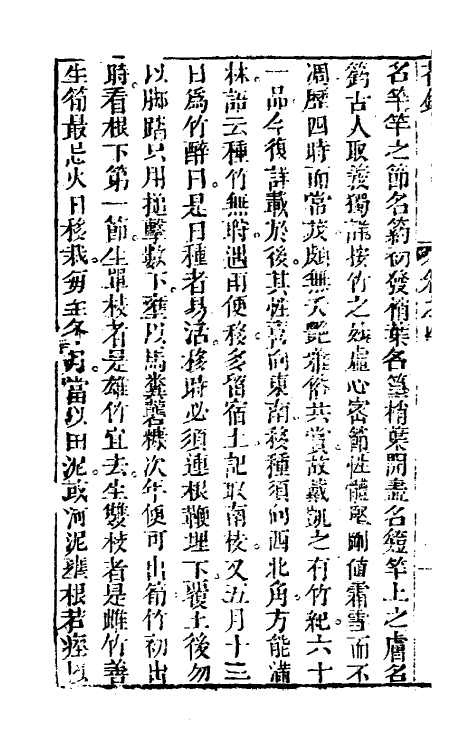 名竿竿之節名䈟初發梢葉名篁梢葉開盡名䈴竿上之膚名
筠古人取義獨詳按竹之妙虛心密節性體堅剛值霜雪而不
凋歷四時而常茂頗無夭艷雅俗共賞故戴凱之有竹紀六十
一品今復詳載於後其性喜向東南移種須向西北角方能滿
林語云種竹無時遇雨便移多留宿土記取南枝又五月十三
日爲竹醉日是日種者易活移時必須連根鞭埋下覆土後勿
以脚踏只用搥擊數下壅以馬糞礱糠次年便可出筍竹初出
時看根下第一節生單枝者是雄竹宜去生雙枝者是雌竹善
生筍最忌火日移栽每至冬月當以田泥或河泥壅根若瘞以